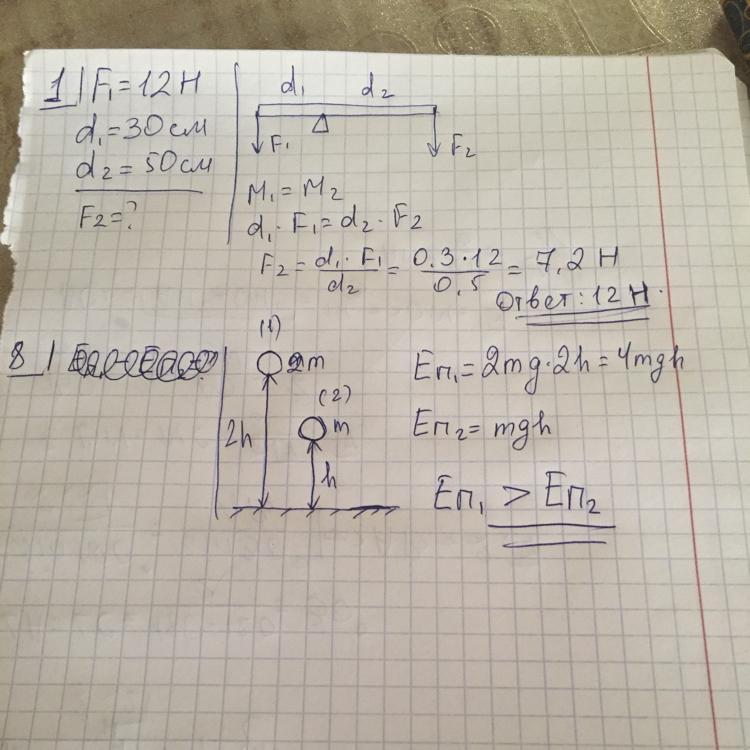 1 | F₁ = 12 Н
d₁ = 30 см
d₂ = 50 см
F₂ = ?
d₁ d₂
F₁ F₂
M₁ = M₂
d₁ · F₁ = d₂ · F₂
F₂ = d₁ · F₁ / d₂ = 0.3 · 12 / 0,5 = 7,2 Н
Ответ: 12 Н.
8 |
(1)
2m
(2)
m
2h
h
Eп₁ = 2mg · 2h = 4mgh
Eп₂ = mgh
Eп₁ > Eп₂